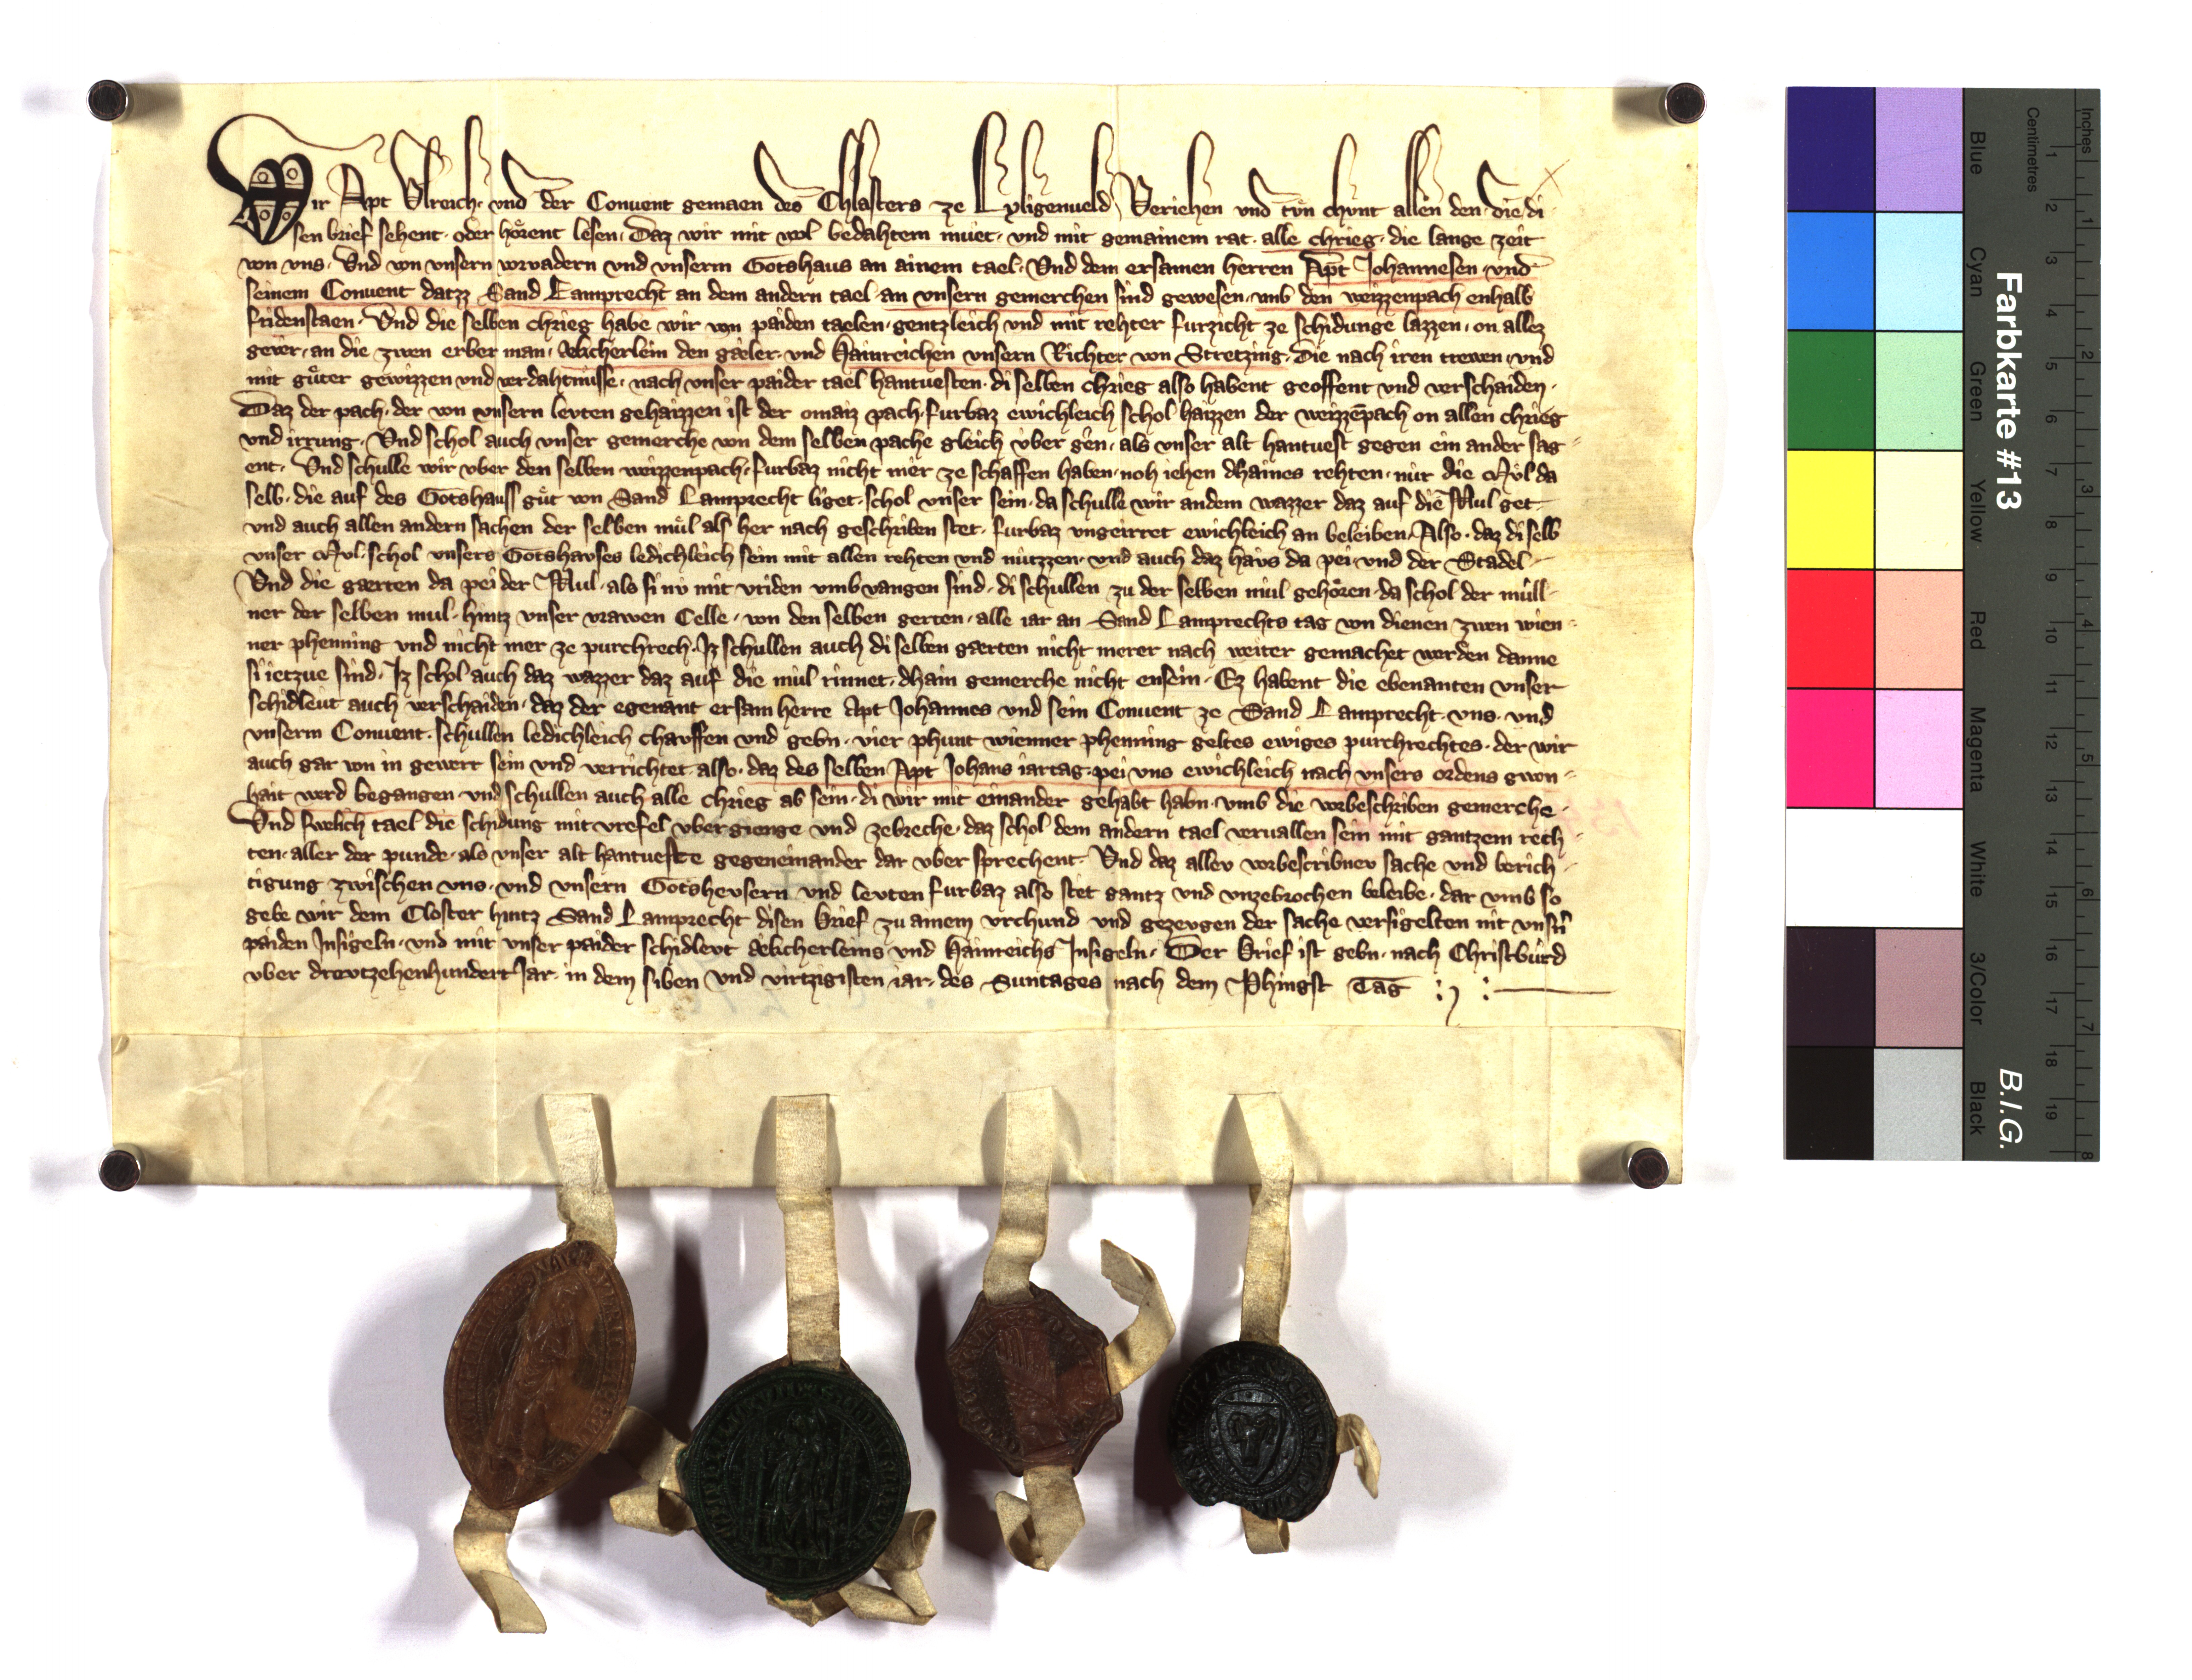 Wir Apt Vlreich· vnd der Conuent gemaen des Chlosters ze Lyligenueld Veriehen vnd tvͦn chvnt allen den· die di
sen brief sehent· oder hoͤrent lesen· Daz wir mit wol bedahtem mvͤt· vnd mit gemainem rat· alle chrieg· die lange zeit
von vns· Vnd von vnsern vorvadern vnd vnserm Gotshaus an ainem tael· Vnd dem ersamen herren Apt Johannesen· vnd
seinem Conuent datzz Sand Lamprecht an dem andern tael an vnsern gemerchen sind gewesen· vmb den weizzenpach enhalb
fridenstaen· Vnd die selben chrieg habe wir von paiden taelen· gentzleich vnd mit rehter furzicht ze schidunge lazzen· on allez
gever· an die zwen erber man· den gaͤler· vnd Hainreichen vnsern Richter von Stretzing· Die nach iren trewen· vnd
mit guͤter gewizzen vnd verdahtnüsse· nach vnser paider tael hantuesten· di selben chrieg also habent geoffent vnd verschaiden·
Daz der pach· der von vnsern levten gehaizzen ist der omaiz pach· furbaz ewichleich schol haizzen der weizzēpach on allen chrieg
vnd irrung· Vnd schol auch vnser gemerche von dem selben pache gleich vber gen· als vnser alt hantuest gegen ein ander sag⸗
ent· Vnd schulle wir vber den selben weizzenpach· furbaz nicht mer ze schaffen haben· noh iehen dhaines rehten· nur die Mvl da
selb· die auf des Gotshauss guͤt von Sand Lamprecht liget· schol vnser sein· da schulle wir andem wazzer daz auf die Mul get·
vnd auch allen andern sachen der selben muͤl als her nach geschriben stet· furbaz vngeirret ewichleich an beleiben· Also· daz di selb
vnser Mvl· schol vnsers Gotshauses ledichleich sein mit allen rehten vnd nützzen· vnd auch daz havs da pei· vnd der Stadel·
Vnd die gaerten da pei der Mul· als si nv mit vriden vmbvangen sind· di schullen zu der selben mül gehoͤren· da schol der müll⸗
ner der selben mul· hintz vnser vrawen Celle· von den selben gerten· alle iar an Sand Lamprechts tag von dienen zwen wien⸗
ner phenning vnd nicht mer ze purchrech· Iz schullen auch di selben gaerten nicht merer nach weiter gemachet werden danne
si ietzue sind· Iz schol auch daz wazzer daz auf die mül rinnet· dhain gemerche nicht ensein· Ez habent die ebenanten vnser
schidleut auch verschaiden· daz der egenant ersam herre Apt Johannes vnd sein Conuent ze Sand Lamprecht· vns· vnd
vnserm Conuent· schullen ledichleich chauffen vnd gebn· vier phunt wienner phenning geltes ewiges purchrechtes· der wir
auch gar von in gewert sein vnd verrichtet· also· daz des selben Apt Johans iartag· pei vns ewichleich nach vnsers ordens gwon⸗
hait werd begangen· vnd schullen auch alle chrieg ab sein· di wir mit einander gehabt habn· vmb die vorbeschriben gemerche·
Vnd swelich tael die schidung mit vrefel vbergienge vnd zebreche· daz schol dem andern tael veruallen sein mit gantzem rech⸗
ten· aller der punde· als vnser alt hantueste gegeneinander dar vber sprechent· Vnd daz allev vorbescribnev sache vnd berich⸗
tigung zwischen vns· vnd vnsern Gotshevsern vnd levten furbaz also stet gantz vnd vnzebrochen beleibe· dar vmb so
gebe wir dem Closter hintz Sand Lamprecht disen brief zu ainem vrchund vnd gezevgen der sache versigelten mit vnsn̄
paiden Insigeln· vnd mit vnser paider schidlevt vnd Hainreichs Insigeln· Der brief ist gebn· nach Christburd
vber drevtzehenhundert Jar· in dem siben vnd virtzigisten iar· des Suntages nach dem Phingst Tag
Farbkarte #13
B.I.G.
Inches
Centimetres
1 2 3 4 5 6 7 8 9 10 11 12 13 14 15 16 17 18 19
1 2 3 4 5 6 7 8
Blue
Cyan
Green
Yellow
Red
Magenta
White
3/Color
Black